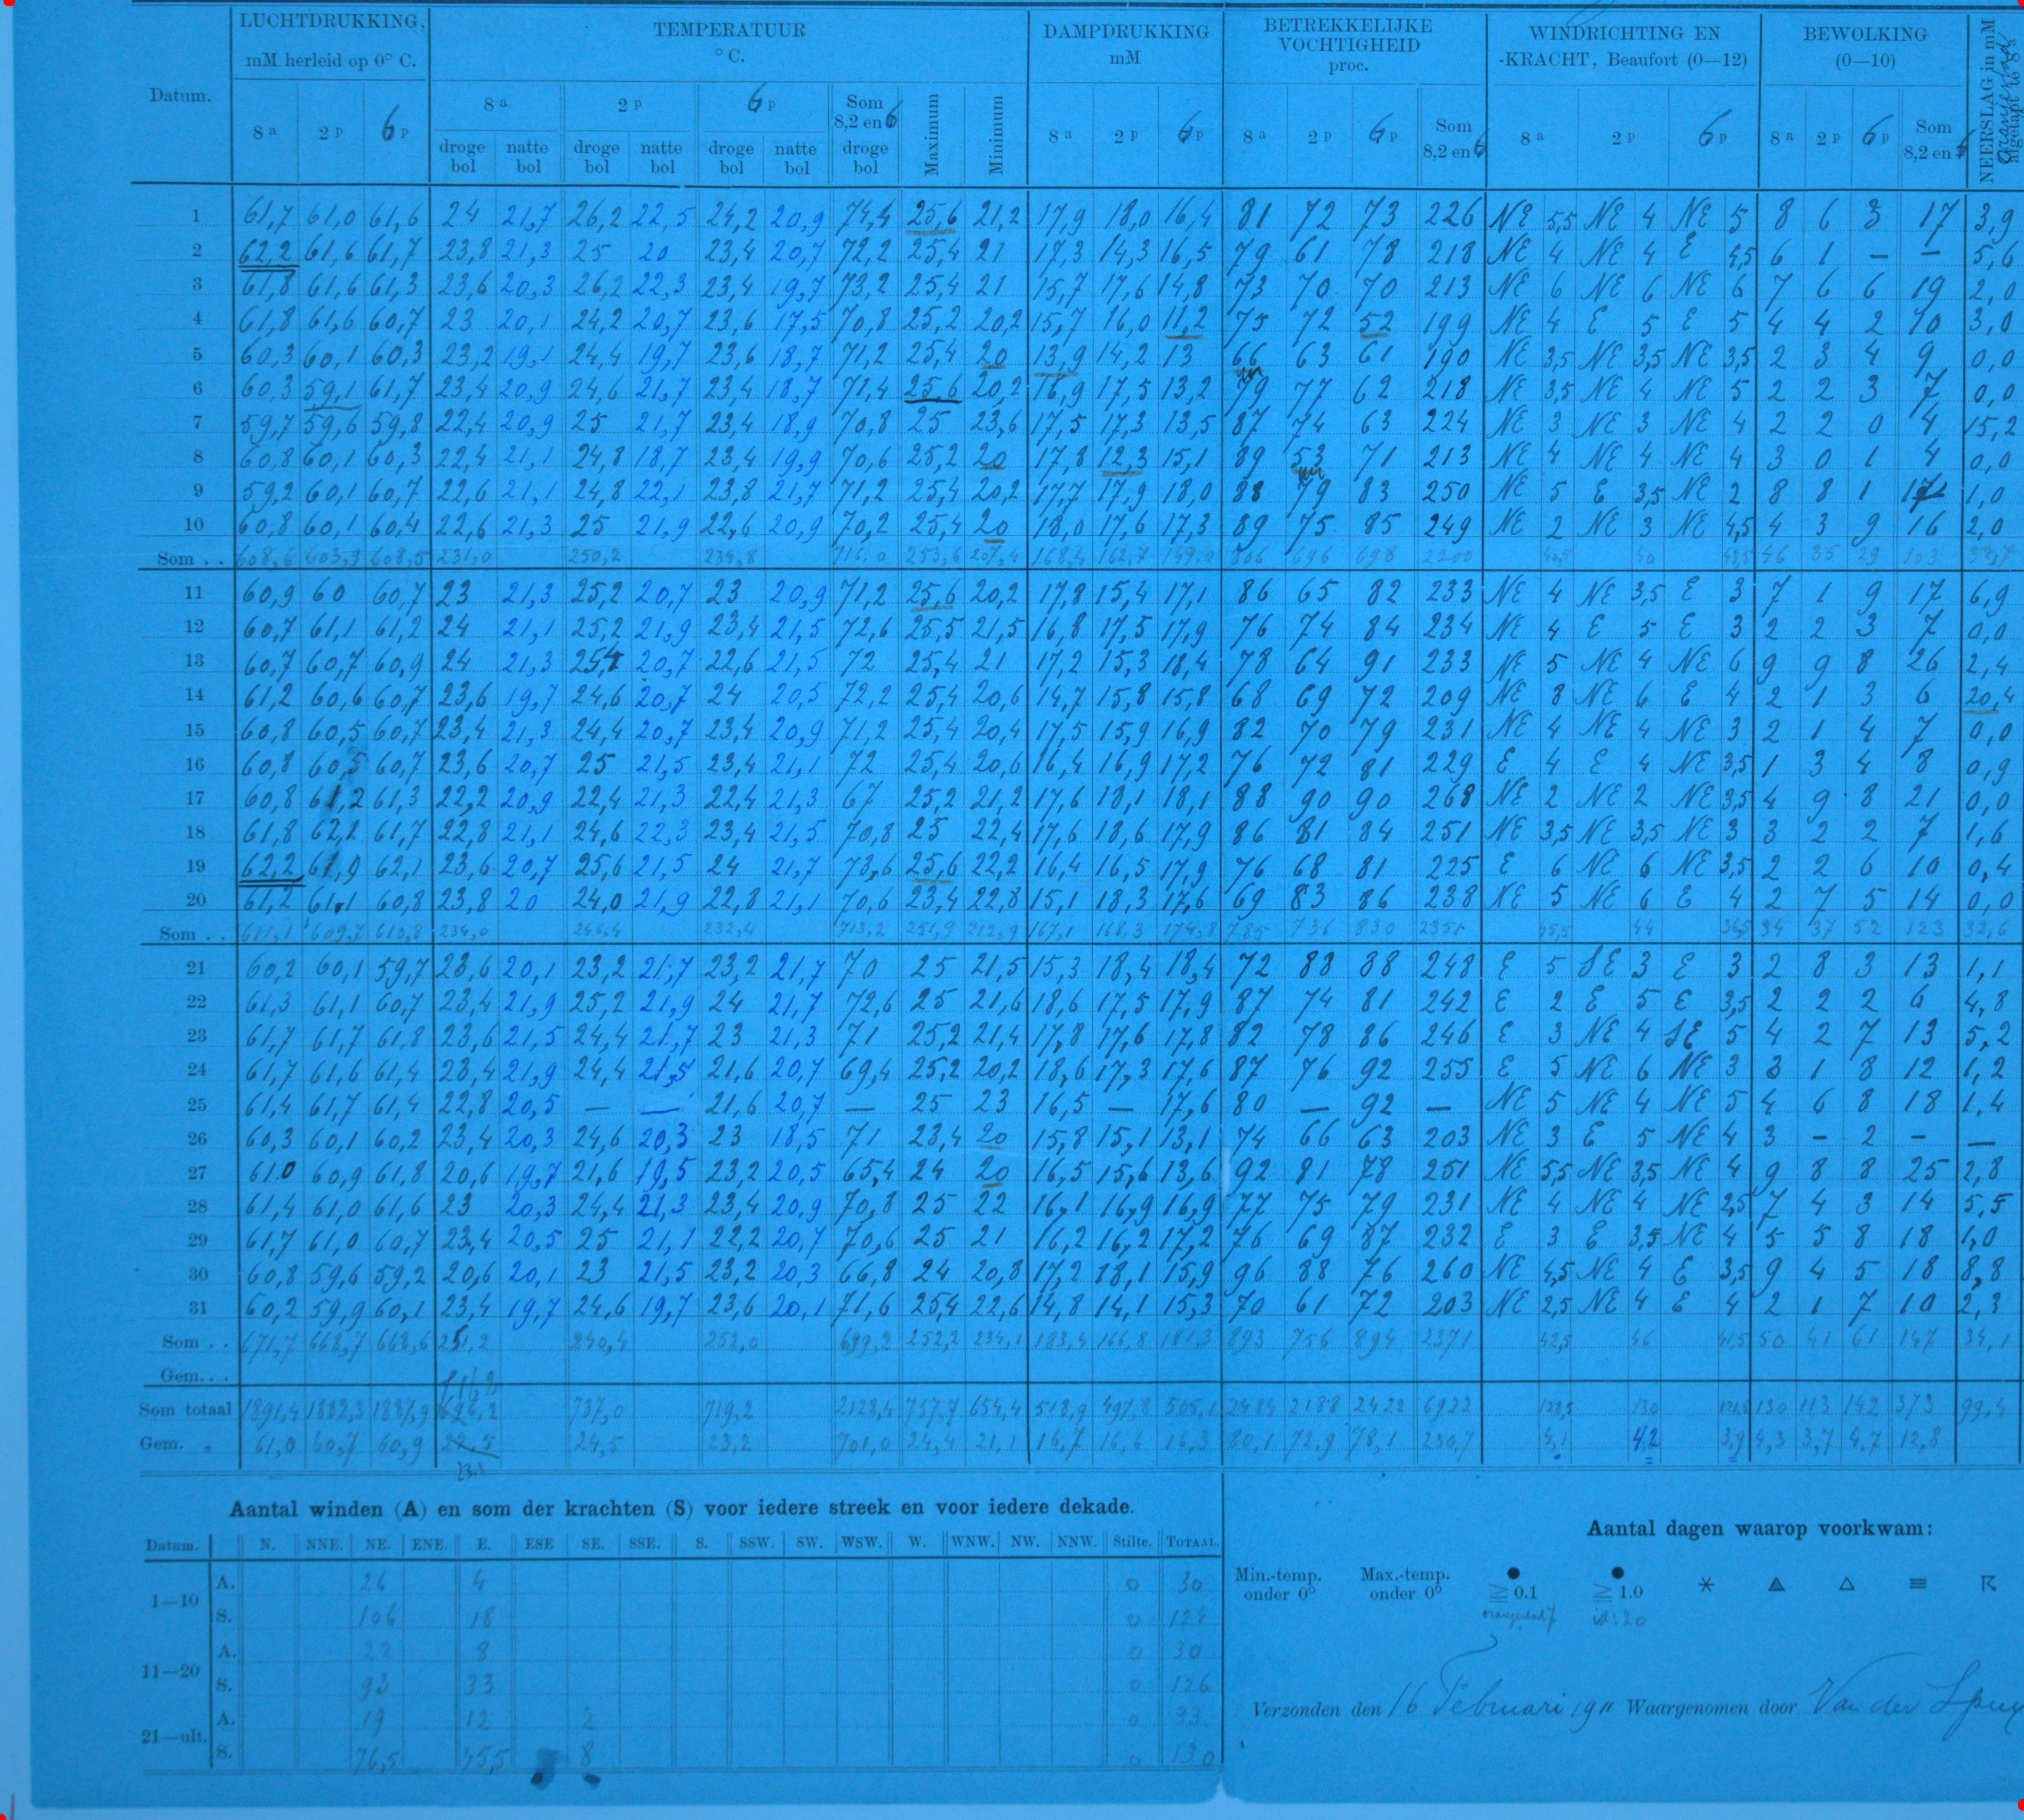 LUCHTDRUKKING, TEMPERATUUR DAMPDRUKKING BETREKKELIJKE VOCHTIGHEID WINDRICHTING EN BEWOLKING NEERSLAG in mM
mM herleid op 0° C. ° C. mM proc. -KRACHT, Beaufort (0—12) (0—10)
Datum. 8 a 2 p 6 p 8 a 2 p 6 p Som 8,2 en 6 Maximum Minimum 8 a 2 p 6 p 8 a 2 p 6 p Som 8,2 en 6 8 a 2 p 6 p 8 a 2 p 6 p Som 8,2 en 6
droge bol natte bol droge bol natte bol droge bol natte bol droge bol
1 61,7 61,0 61,6 24 21,7 26,2 22,5 24,2 20,9 74,4 25,6 21,2 17,9 18,0 16,4 81 72 73 226 NE 5,5 NE 4 NE 5 8 6 3 17 3,9
2 62,2 61,6 61,7 23,8 21,3 25 20 23,4 20,7 72,2 25,4 21 17,3 14,3 16,5 79 61 78 218 NE 4 NE 4 E 4,5 6 1 — — 5,6
3 61,8 61,6 61,3 23,6 20,3 26,2 22,3 23,4 19,7 73,2 25,4 21 15,7 17,6 14,8 73 70 70 213 NE 6 NE 6 NE 6 7 6 6 19 2,0
4 61,8 61,6 60,7 23 20,1 24,2 20,7 23,6 17,5 70,8 25,2 20,2 15,7 16,0 11,2 75 72 52 199 NE 4 E 5 E 5 4 4 2 10 3,0
5 60,3 60,1 60,3 23,2 19,1 24,4 19,7 23,6 18,7 71,2 25,4 20 13,9 14,2 13 66 63 61 190 NE 3,5 NE 3,5 NE 3,5 2 3 4 9 0,0
6 60,3 59,1 61,7 23,4 20,9 24,6 21,7 23,4 18,7 71,4 25,6 20,2 16,9 17,5 13,2 79 77 62 218 NE 3,5 NE 4 NE 5 2 2 3 7 0,0
7 59,7 59,6 59,8 22,4 20,9 25 21,7 23,4 18,9 70,8 25 23,6 17,5 17,3 13,5 87 74 63 224 NE 3 NE 3 NE 4 2 2 0 4 15,2
8 60,8 60,1 60,3 22,4 21,1 24,8 18,7 23,4 19,9 70,6 25,2 20 17,8 12,3 15,1 89 53 71 213 NE 4 NE 4 NE 4 3 0 1 4 0,0
9 59,2 60,1 60,7 22,6 21,1 24,8 22,1 23,8 21,7 71,2 25,4 20,2 17,7 17,9 18,0 88 79 83 250 NE 5 E 3,5 NE 2 8 8 1 17 1,0
10 60,8 60,1 60,4 22,6 21,3 25 21,9 22,6 20,9 70,2 25,4 20 18,0 17,6 17,3 89 75 85 249 NE 2 NE 3 NE 4,5 4 3 9 16 2,0
Som . . 608,6 603,9 608,5 231,0 250,2 234,8 716,0 253,6 207,4 168,4 162,7 149,0 806 696 698 2200 40,5 40 43,5 46 35 29 103
11 60,9 60 60,7 23 21,3 25,2 20,7 23 20,9 71,2 25,6 20,2 17,8 15,4 17,1 86 65 82 233 NE 4 NE 3,5 E 3 7 1 9 17 6,9
12 60,7 61,1 61,2 24 21,1 25,2 21,9 23,4 21,5 72,6 25,5 21,5 16,8 17,5 17,9 76 74 84 234 NE 4 E 5 E 3 2 2 3 7 0,0
13 60,7 60,7 60,9 24 21,3 25,4 20,7 22,6 21,5 72 25,4 21 17,2 15,3 18,4 78 64 91 233 NE 5 NE 4 NE 6 9 9 8 26 2,4
14 61,2 60,6 60,7 23,6 19,7 24,6 20,7 24 20,5 72,2 25,4 20,6 14,7 15,8 15,8 68 69 72 209 NE 8 NE 6 E 4 2 1 3 6 20,4
15 60,8 60,5 60,7 23,4 21,3 24,4 20,7 23,4 20,9 71,2 25,4 20,4 17,5 15,9 16,9 82 70 79 231 NE 4 NE 4 NE 3 2 1 4 7 0,0
16 60,8 60,5 60,7 23,6 20,7 25 21,5 23,4 21,1 72 25,4 20,6 16,4 16,9 17,2 76 72 81 229 E 4 E 4 NE 3,5 1 3 4 8 0,9
17 60,8 61,2 61,3 22,2 20,9 22,4 21,3 22,4 21,3 67 25,2 21,2 17,6 18,1 18,1 88 90 90 268 NE 2 NE 2 NE 3,5 4 9 8 21 0,0
18 61,8 62,1 61,7 22,8 21,1 24,6 22,3 23,4 21,5 70,8 25 22,4 17,6 18,6 17,9 86 81 84 251 NE 3,5 NE 3,5 NE 3 3 2 2 7 1,6
19 62,2 61,9 62,1 23,6 20,7 25,6 21,5 24 21,7 73,6 25,6 22,2 16,4 16,5 17,9 76 68 81 225 E 6 NE 6 NE 3,5 2 2 6 10 0,4
20 61,2 61,1 60,8 23,8 20 24,0 21,9 22,8 21,1 70,6 23,4 22,8 15,1 18,3 17,6 69 83 86 238 NE 5 NE 6 E 4 2 7 5 14 0,0
Som . . 611,1 609,7 610,8 234,0 246,4 232,4 713,2 251,9 212,9 167,1 168,3 174,8 785 736 830 2351 45,5 44 36,5 34 37 52 123 32,6
21 60,2 60,1 59,7 23,6 20,1 23,2 21,7 23,2 21,7 70 25 21,5 15,3 18,4 18,4 72 88 88 248 E 5 SE 3 E 3 2 8 3 13 1,1
22 61,3 61,1 60,7 23,4 21,9 25,2 21,9 24 21,7 72,6 25 21,6 18,6 17,5 17,9 87 74 81 242 E 2 E 5 E 3,5 2 2 2 6 4,8
23 61,7 61,7 61,8 23,6 21,5 24,4 21,7 23 21,3 71 25,2 21,4 17,8 17,6 17,8 82 78 86 246 E 3 NE 4 SE 5 4 2 7 13 5,2
24 61,7 61,6 61,4 23,4 21,9 24,4 21,5 21,6 20,7 69,4 25,2 20,2 18,6 17,3 17,6 87 76 92 255 E 5 NE 6 NE 3 3 1 8 12 1,2
25 61,4 61,7 61,4 22,8 20,5 — — 21,6 20,7 — 25 23 16,5 — 17,6 80 — 92 — NE 5 NE 4 NE 5 4 6 8 18 1,4
26 60,3 60,1 60,2 23,4 20,3 24,6 20,3 23 18,5 71 23,4 20 15,8 15,1 13,1 74 66 63 203 NE 3 E 5 NE 4 3 – 2 – —
27 61.0 60,9 61,8 20,6 19,7 21,6 19,5 23,2 20,5 65,4 24 20 16,5 15,6 13,6 92 81 78 251 NE 5,5 NE 3,5 NE 4 9 8 8 25 2,8
28 61,4 61,0 61,6 23 20,3 24,4 21,3 23,4 20,9 70,8 25 22 16,1 16,9 16,9 77 75 79 231 NE 4 NE 4 NE 2,5 7 4 3 14 5,5
29 61,7 61,0 60,7 23,4 20,5 25 21,1 22,2 20,7 70,6 25 21 16,2 16,2 17,2 76 69 87 232 E 3 E 3,5 NE 4 5 5 8 18 1,0
30 60,8 59,6 59,2 20,6 20,1 23 21,5 23,2 20,3 66,8 24 20,8 17,2 18,1 15,9 96 88 76 260 NE 4,5 NE 4 E 3,5 9 4 5 18 8,8
31 60,2 59,9 60,1 23,4 19,7 24,6 19,7 23,6 20,1 71,6 25,4 22,6 14,8 14,1 15,3 70 61 72 203 NE 2,5 NE 4 E 4 2 1 7 10 2,3
Som . . 671,7 668,7 668,6 251,2 240,4 252,0 699,2 252,2 234,1 183,4 166,8 181,3 893 756 894 2371 42,5 46 41,5 50 41 61 147 34,1
Gem. . .
Som totaal 1891,4 1882,3 1887,9 737,0 719,2 2128,4 757,7 654,4 518,9 497,8 505,1 2484 2188 2422 6922 128,5 130 121,5 130 113 142 373 99,4
Gem. „ 61,0 60,7 60,9 22,5 24,5 23,2 701,0 24,4 21,1 16,7 16,6 16,3 80,1 72,9 78,1 230,7 4,1 4,2 3,9 4,3 3,7 4,7 12,8
23.1
Aantal winden (A) en som der krachten (S) voor iedere streek en voor iedere dekade.
Datum. N. NNE. NE. ENE. E. ESE SE. SSE. S. SSW. SW. WSW. W. WNW. NW. NNW. Stilte. TOTAAL.
1—10 A. 26 4 0 30
S. 106 18 0 124
11—20 A. 22 8 0 30
S. 93 33 0 126
21—ult. A. 19 12 2 0 33
S. 76,5 45,5 8 0 130
Aantal dagen waarop voorkwam:
Min.-temp. onder 0° Max.-temp. onder 0° ≧ 0.1 ≧ 1.0
id: 20
Verzonden den 16 Februari 1911 Waargenomen door Van der